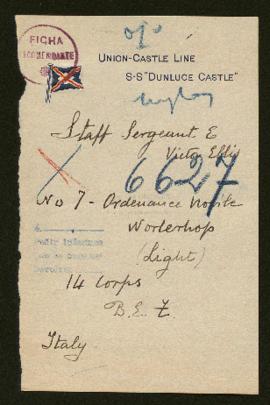 FICHA
UNION-CASTLE LINE
S·S "DUNLUCE CASTLE"
Staff Sergeant E
Victor Ellis
6627
No 7 - Ordenance Mobile
Workshop
(Light)
14 Corps
B.E.F.
Italy.